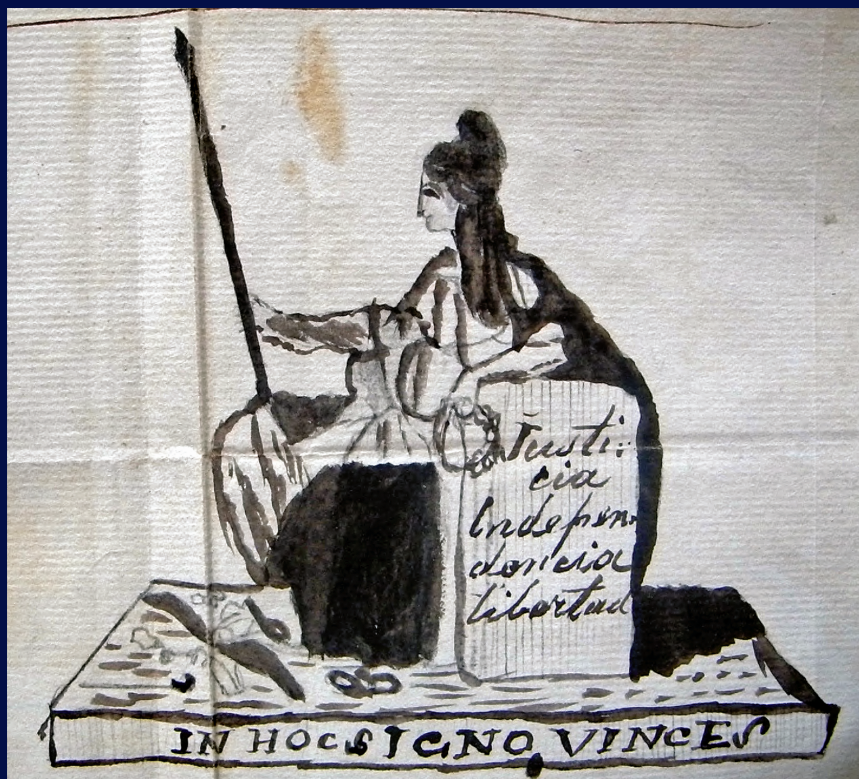 Justi-
cia
Indepen-
dencia
libertad
IN HOC SIGNO VINCES